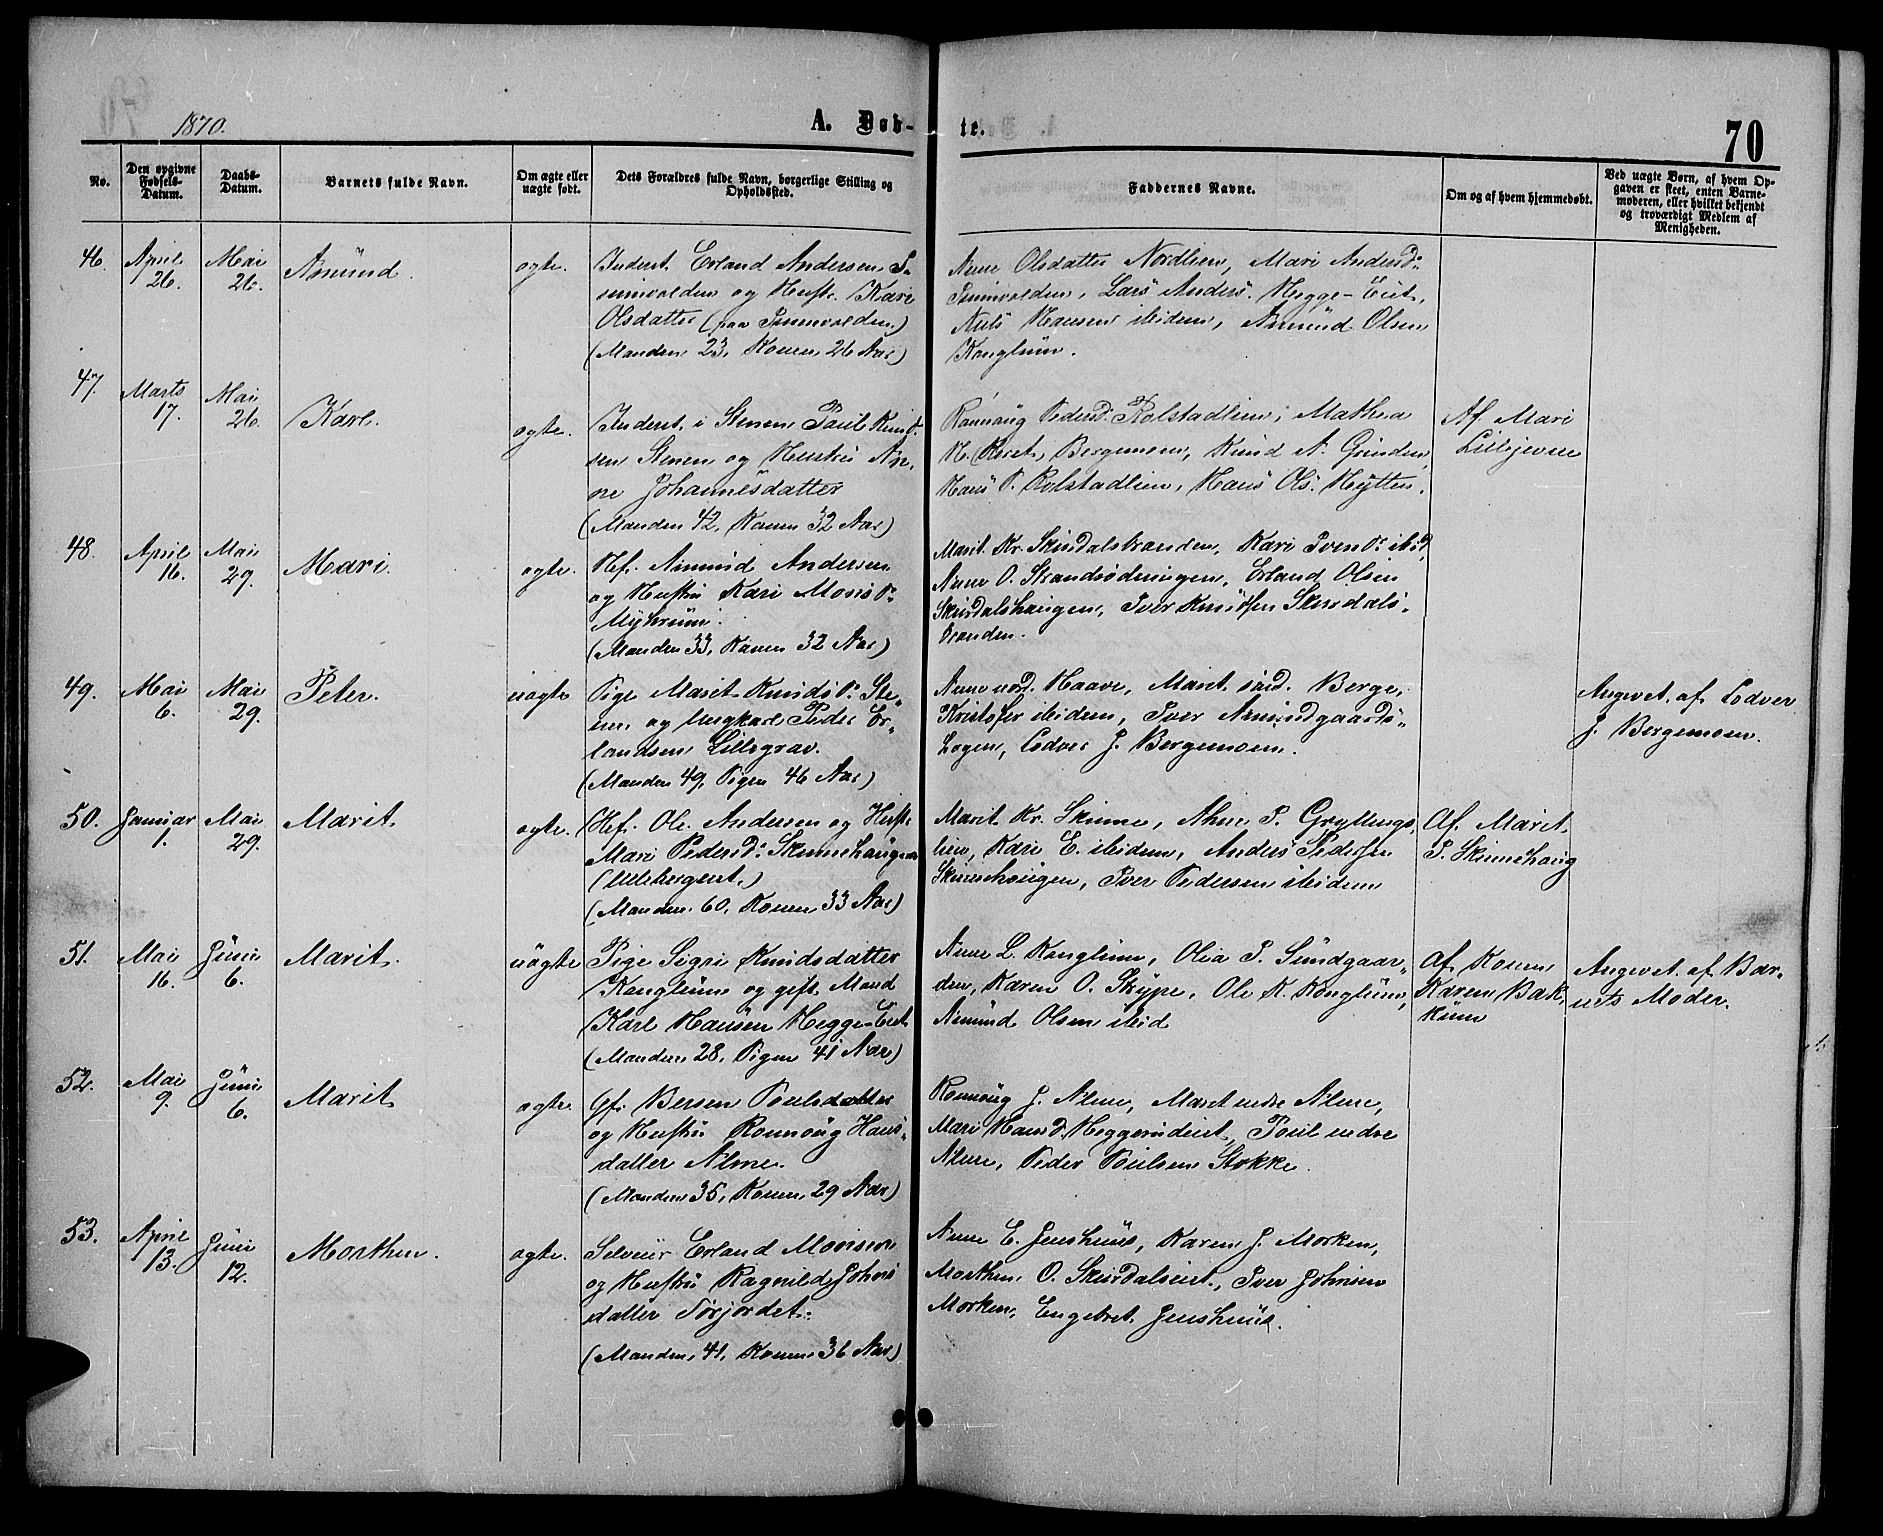 1870.
A. Døb-
te.
70
No.
Den opgivne Fødsels-Datum.
Daabs-Datum.
Barnets fulde Navn.
Om ægte eller uægte født.
Dets Forældres fulde Navn, borgerlige Stilling og Opholdssted.
Faddernes Navne.
Om og af hvem hjemmedøbt.
Ved uægte Børn, af hvem Opgaven er skeet, enten Barnemoderen, eller hvilket bekjendt og troværdigt Medlem af Menigheden.
46. April 26. Mai 26. Amund. ægte.
Inderst. Erland Andersen
og Hustr. Kari
Olsdatter (paa
(Manden 23, Konen 26 Aar)
Anne Olsdatter Nordlien, Mari Andersd:
Lars Anders. Hegge-Eiet,
Niels Hansen ibidem, Amund Olsen
Konglum.
47. Marts 17. Mai 26. Karl. ægte.
Inderst. i Stenen Poul Knud-
sen Stenen og Hustru An-
ne Johannesdatter
(Manden 42, Konen 32 Aar)
Rønnaug Pedersd: Rolstadlien, Mathea
Bergemoen, Knud A. Grinden,
Hans P. Rolstadlien, Hans Ols. Hytten.
Af Mari
Lillejevne
48. April 16. Mai 29. Mari. ægte.
Hf. Amund Andersen
og Hustru Kari Monsd:
Myhrum.
(Manden 33, Konen 32 Aar)
Marit Kr. Skurdalstranden, Kari Svend: ibid,
Anne O. Strandsødningen, Erland Olsen
Skurdalshaugen, Iver Knudsen Skurdals-
tranden.
49. Mai 6. Mai 29. Peter. uægte
Pige Marit Knudsd: Ste-
nen og Ungkarl Peder Er-
landsen Lillegrav.
(Manden 49, Pigen 46 Aar)
Anne nord. Haave, Marit sørd. Berge,
Kristofer ibidem, Iver Amundgaards-
hogen, Lodver J. Bergemoen.
Angivet af Lodver
J. Bergemoen.
50. Januar 1. Mai 29. Marit. ægte.
Hf. Ole Andersen og Hustr.
Mari Pedersd: Skinnehaugen
(Ullebergeiet.)
(Manden 60, Konen 33 Aar)
Marit Kr. Skinne, Anne P. Gryllings-
lien, Kari E. ibidem, Anders Pedersen
Skinnehaugen, Iver Pedersen ibidem
Af Marit
P. Skinnehaug
51. Mai 16. Juni 6. Marit. uægte
Pige Sigri Knudsdatter
Konglum og gift Mand
Karl Hansen Hegge-Eiet
(Manden 28, Pigen 41 Aar)
Anne L. Konglum, Olia P. Sundgaar-
den, Karen O. Skype, Ole K. Konglum,
Amund Olsen ibid
Af Konen
Karen Bak-
kum
Angivet af Bar-
nets Moder.
52. Mai 9. Juni 6. Marit. ægte.
Gf. Bersen Poulsdatter
og Hustru Rønnoug Hans-
datter Alme.
(Manden 35, Konen 29 Aar)
Rønnoug J. Alme, Marit nedre Alme,
Mari Hansd. Heggerudeiet, Poul nedre
Alme, Peder Poulsen Stokke.
53. April 13. Juni 12. Morthen. ægte.
Selveier Erland Monsen
og Hustru Ragnilde Johns
datter Torjordet.
(Manden 41, Konen 36 Aar)
Anne E. Jenshuus, Karen J. Morken,
Morthen O. Skurdalseiet, Iver Johnsen
Morken, Engebret Jenshuus.